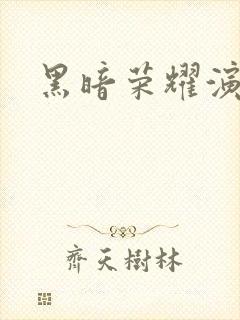 黑暗荣耀演
齊天樹林